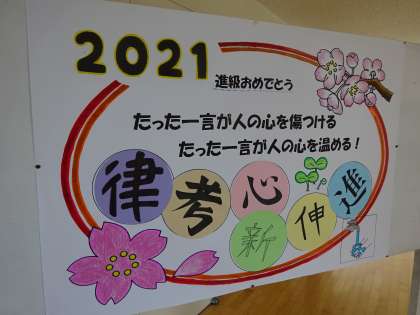 2021
進級おめでとう
たった一言が人の心を傷つける
たった一言が人の心を温める！
律考心伸進
新